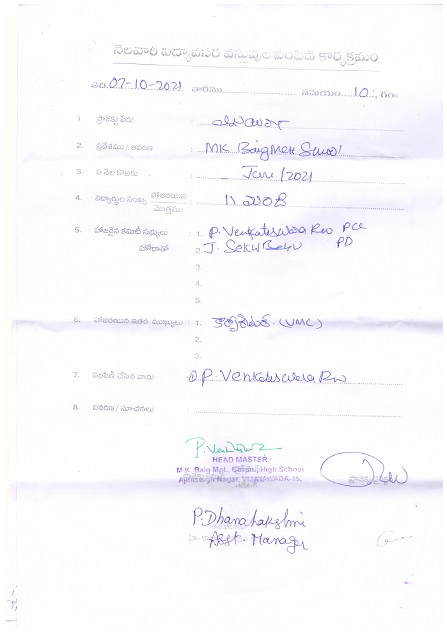 నెలవారీ విద్యావసర వస్తువుల పంపిణీ కార్యక్రమం
తేది. 07-10-2021 వారము.................... సమయం....10.:. గం.
1. ప్రాజెక్టు పేరు :
2. ప్రదేశము / ఆవరణ : MK Baig MCH School
3. ఏ నెల కొఱకు : June / 2021
4. విద్యార్థుల సంఖ్య హాజరయిన : 11 మంది
మొత్తము
5. హాజరైన కమిటీ సభ్యులు : 1. P. Venkateswara Rao PCC
హోదాతో 2. J. Sekhar Babu PD
3.
4.
5.
6. హాజరయిన ఇతర ముఖ్యులు : 1. (VMC)
2.
3.
7. పంపిణీ చేసిన వారు : P. Venkateswara Rao
8. వివరణ / సూచనలు :
HEAD MASTER
M K Baig Mpl. Corpn. High School
Ajithsingh Nagar, VIJAYAWADA-15.
P. Dhanalakshmi
Asst. Manager